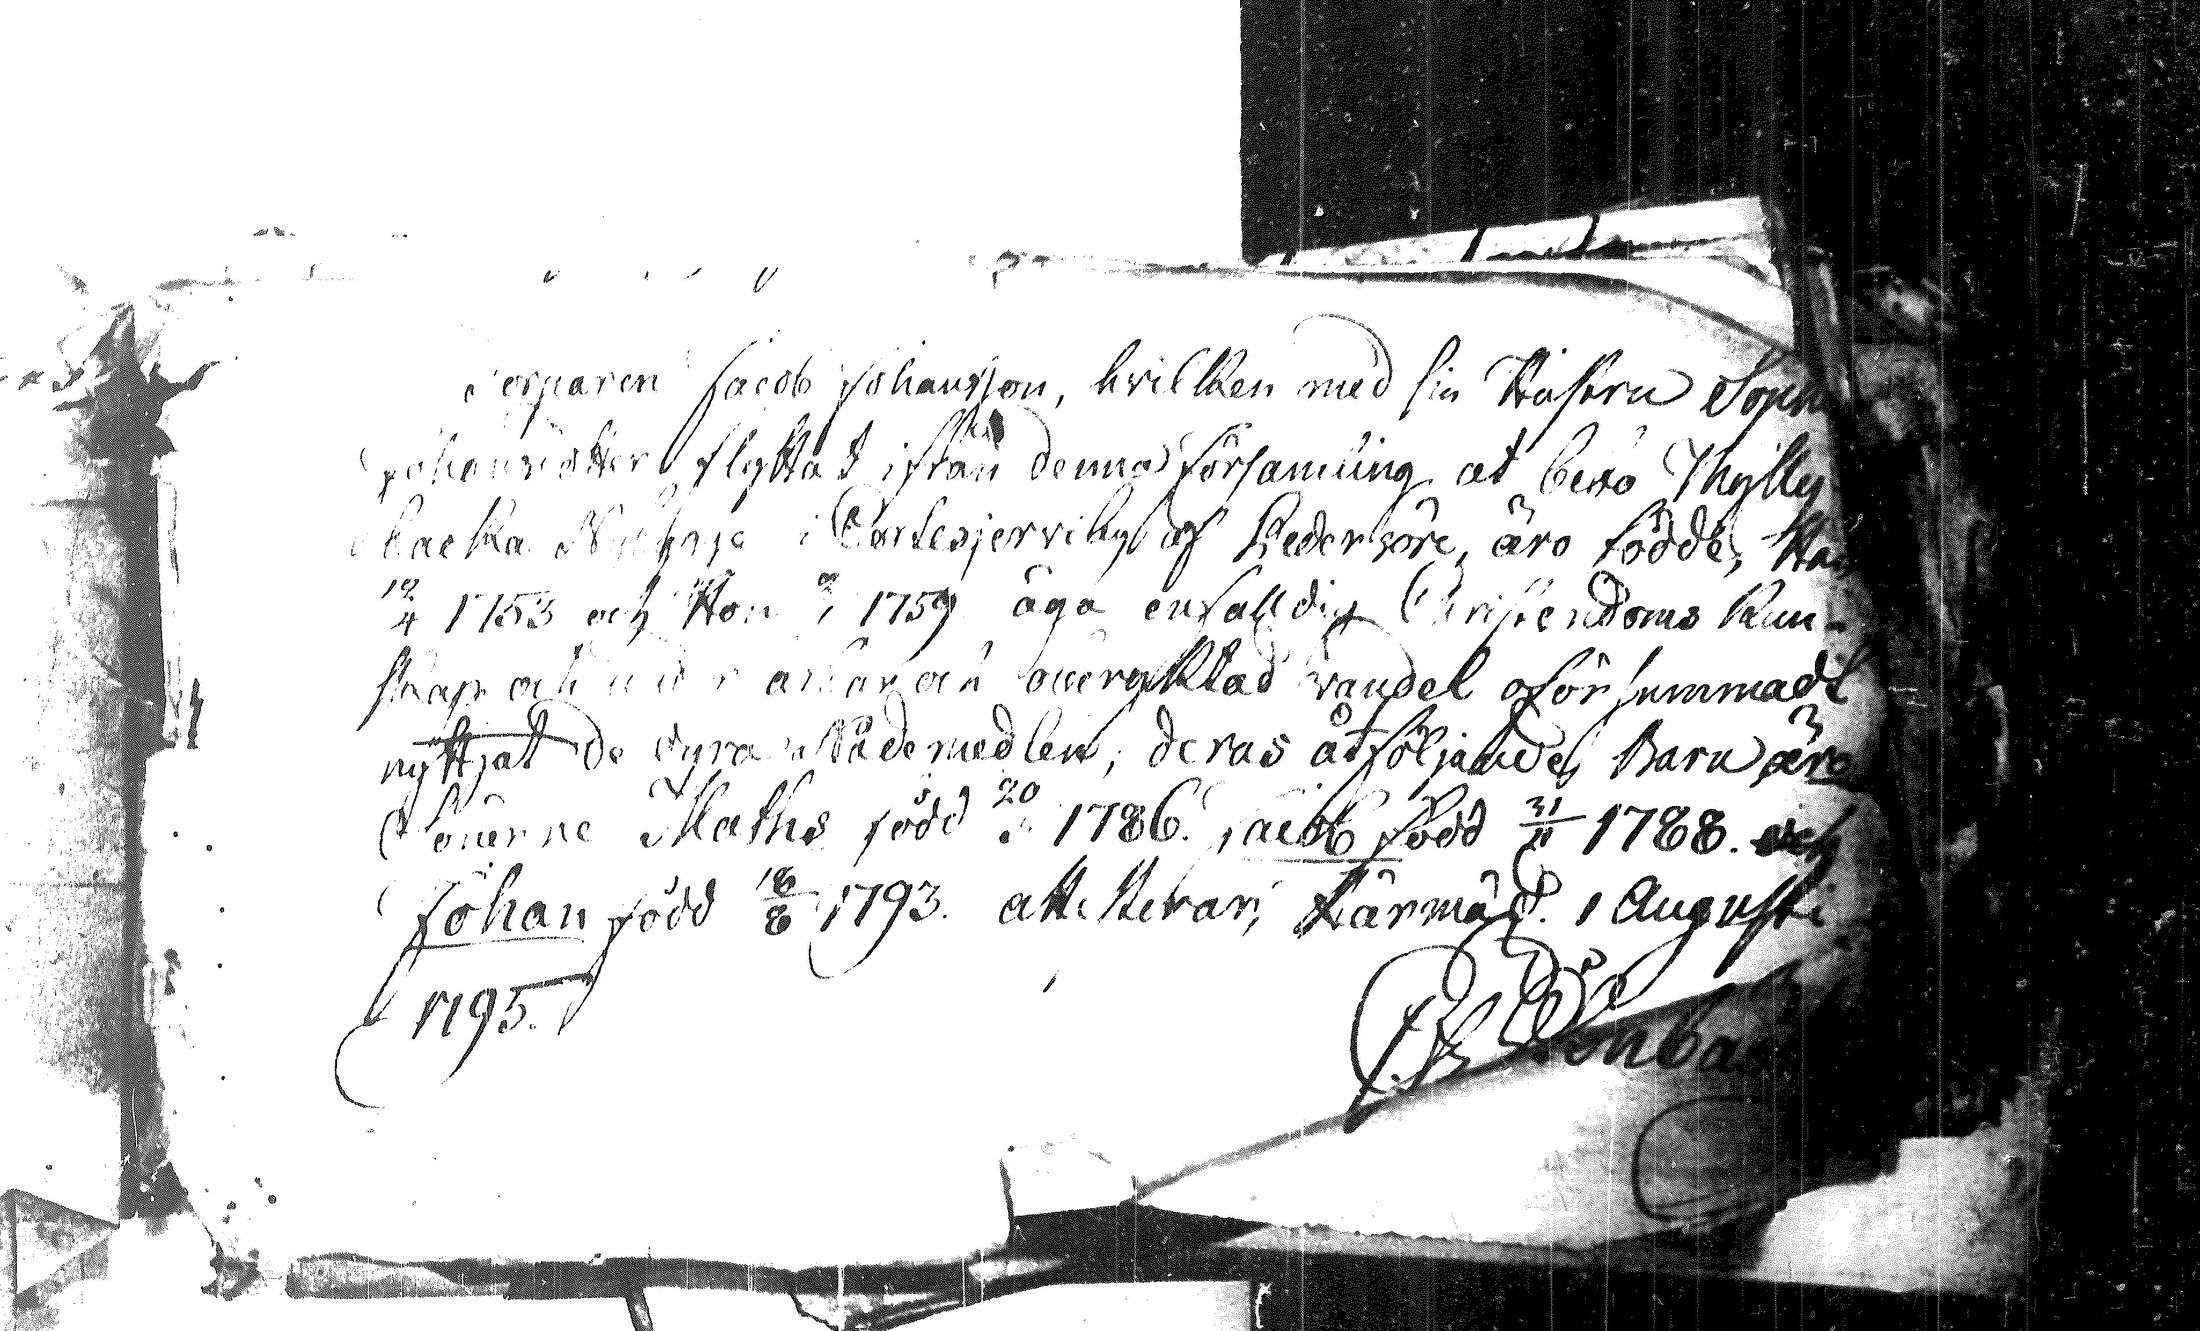 Torparen Jacob Johansson, hvilken med sin Hustru Soph
Johansdotter flyttat ifrån denna församling at bebo Thylly
backa Nybygge i Cortesjervi by af Pedersöre, äro födde, Han
12/4 1753 och Hon 1759 äga enfalldig Christendoms Kun-
skap och under ärbar och oberycktad vandel oförsummadt
nyttjat de dyra Nådemedlen, deras åtföljande Barn äro
Sönerne Maths född 20 1786. Jacob född 31/11 1788. och
Johan född 18/8 1793. attesterar, Kärmäd. 1 Augusti
1795.